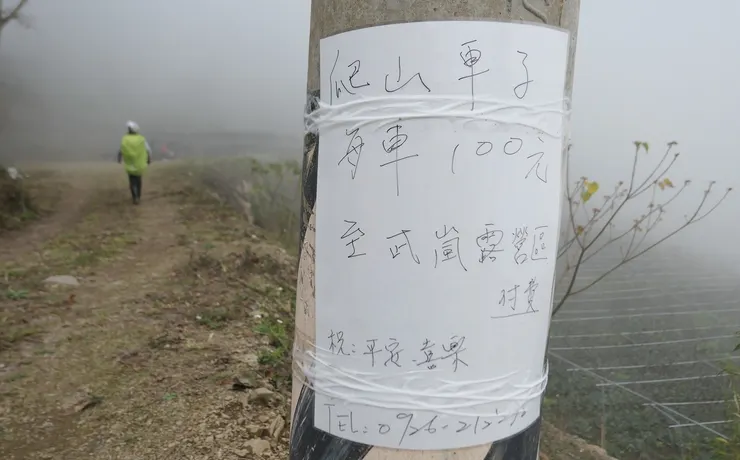 爬山車子
每車100元
至武嵐露營區
付費
祝:平安.喜樂
TEL:0926-212